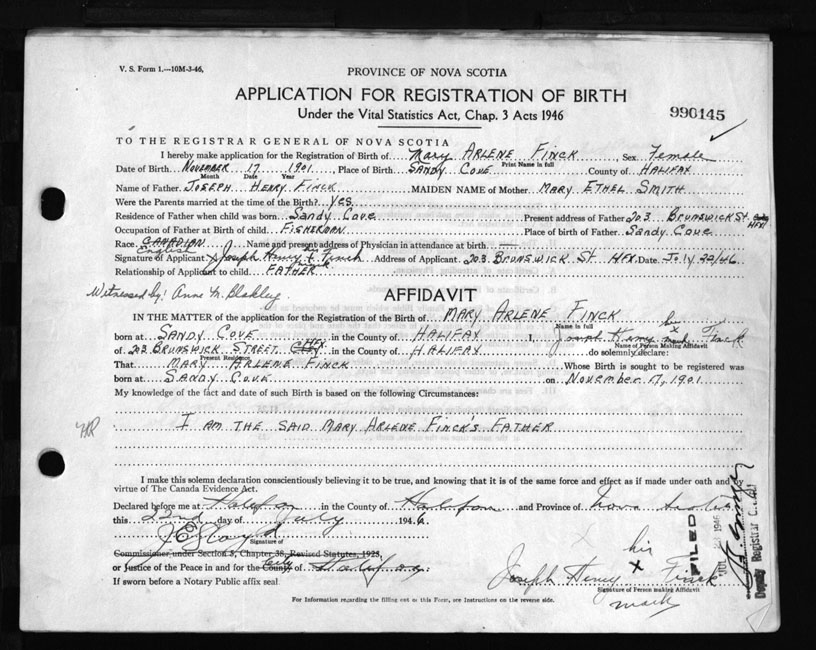 V. S. Form 1.—10M-3-46.
PROVINCE OF NOVA SCOTIA
APPLICATION FOR REGISTRATION OF BIRTH
Under the Vital Statistics Act, Chap. 3 Acts 1946
990145
TO THE REGISTRAR GENERAL OF NOVA SCOTIA
I hereby make application for the Registration of Birth of MARY ARLENE FINCK, Sex Female
Print Name in full
Date of Birth NOVEMBER 17 1901, Place of Birth SANDY COVE County of HALIFAX
Month Date Year
Name of Father JOSEPH HENRY FINCK MAIDEN NAME of Mother MARY ETHEL SMITH
Were the Parents married at the time of the Birth? Yes
Residence of Father when child was born Sandy Cove Present address of Father 203 BRUNSWICK St. HFX
Occupation of Father at Birth of child FISHERMAN Place of birth of Father Sandy Cove
Race CANADIAN Name and present address of Physician in attendance at birth —
English
Signature of Applicant Joseph Henry his x mark Finck Address of Applicant 203 BRUNSWICK St HFX Date July 22/46
Relationship of Applicant to child FATHER
Witnessed by: Anne M. Blakley
AFFIDAVIT
IN THE MATTER of the application for the Registration of the Birth of MARY ARLENE FINCK
Name in full
born at SANDY COVE in the County of HALIFAX I, Joseph Henry his x mark Finck
Name of Person Making Affidavit
of 203 BRUNSWICK STREET HFX in the County of HALIFAX do solemnly declare:
Present Residence
That MARY ARLENE FINCK Whose Birth is sought to be registered was
born at SANDY COVE on NOVEMBER 17, 1901
My knowledge of the fact and date of such Birth is based on the following Circumstances:
I AM THE SAID MARY ARLENE FINCK'S FATHER
I make this solemn declaration conscientiously believing it to be true, and knowing that it is of the same force and effect as if made under oath and by
virtue of The Canada Evidence Act.
Declared before me at Halifax in the County of Halifax and Province of Nova Scotia
this 22nd day of July 1946
Signature of
Commissioner under Section 3, Chapter 38, Revised Statutes, 1923,
or Justice of the Peace in and for the County of City Halifax
If sworn before a Notary Public affix seal
Joseph Henry his x mark Finck
Signature of Person making Affidavit
For Information regarding the filling out of this Form, see Instructions on the reverse side.
FILED
1946
Deputy Registrar